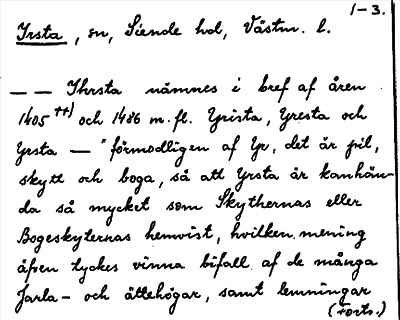 1-3.
Yrsta, sn, Siende hd, Västm. l.
— — Yhrsta nämnes i bref af åren
1405 ††) och 1486 m. fl. Yrista, Yresta och
Yrsta — "förmodligen af Yr, det är pil,
skytt och boga, så att Yrsta är kanhän-
da så mycket som Skythernas eller
Bogeskyternas hemvist, hvilken mening
äfven tyckes vinna bifall af de många
Jarla- och ättehögar, samt lemningar
(Forts.)